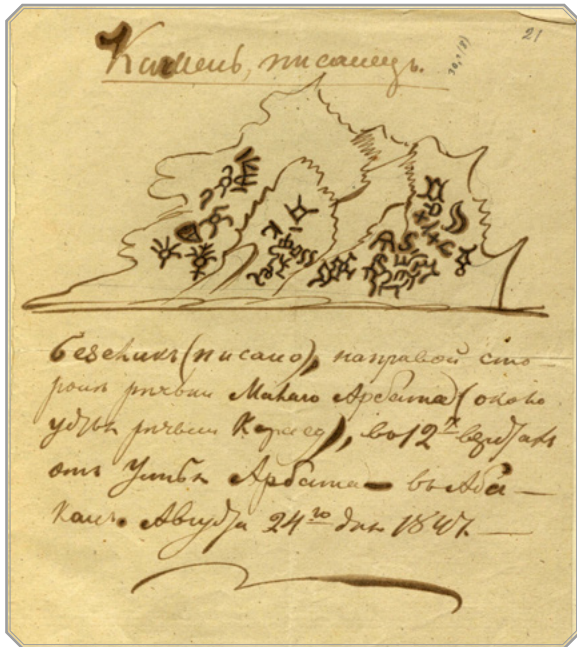 21
Камень, писанецъ.
Безекикъ (писано), направой сто
роне речьки Малаго Арбата (около
речьки), во 12 х верстахъ
отъ Арбата – въ Аба –
канъ. Августа 24 го дня 1847. –